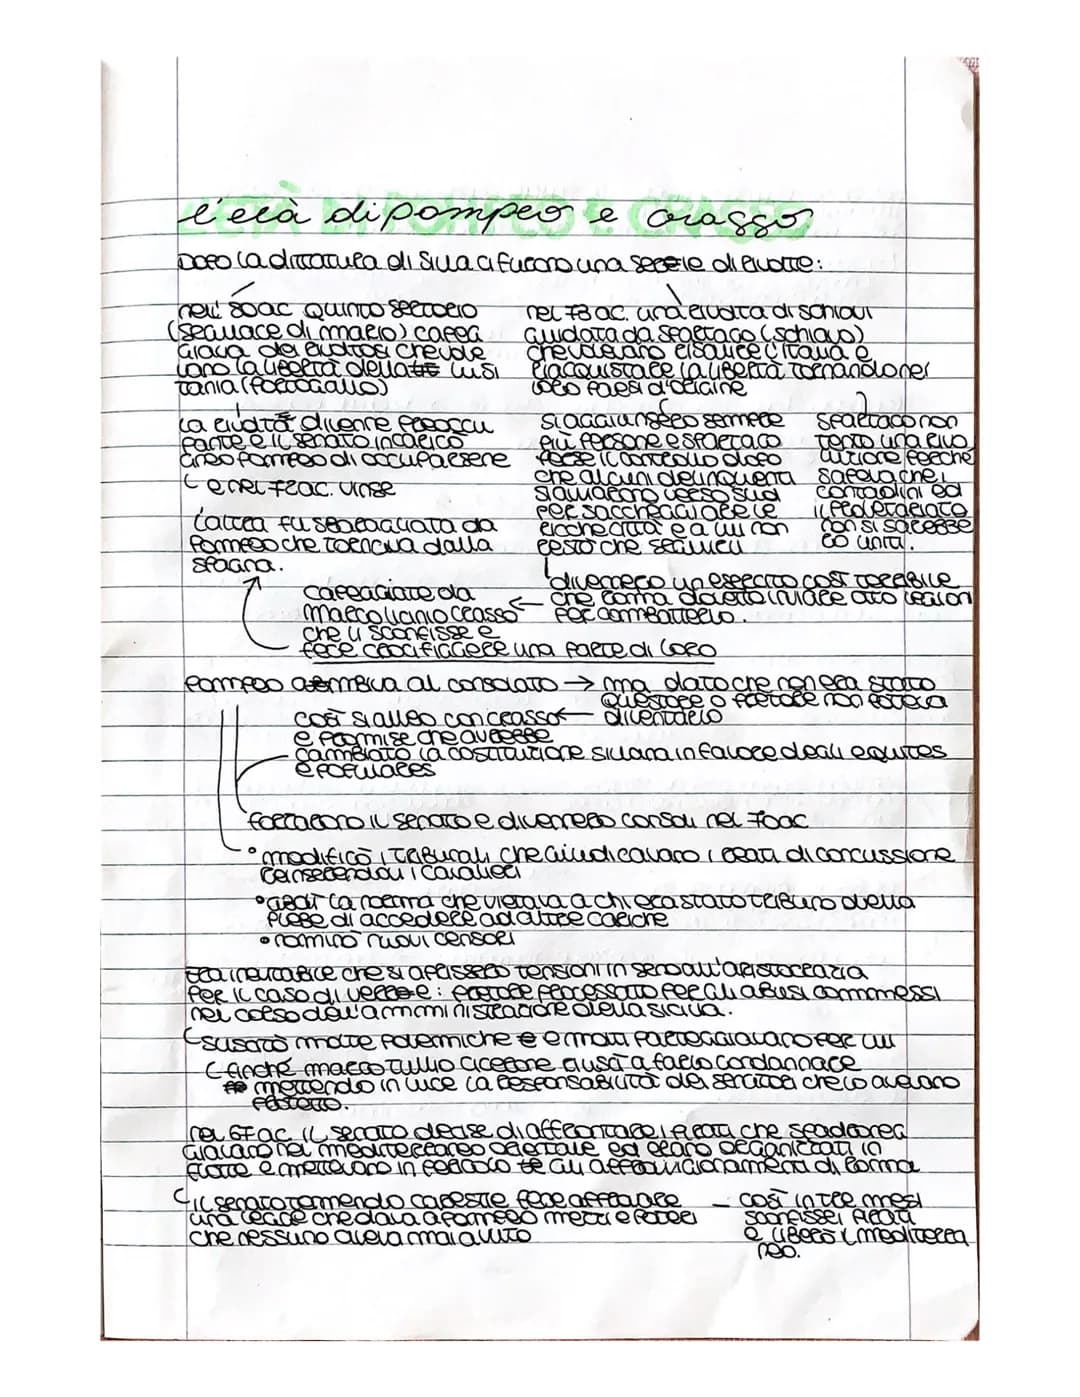 l'età di pompeo e crasso
Dopo la dittatura di Silla ci furono una serie di rivolte:
nell' 80 ac. Quinto Sertorio
(seguace di mario) capeg
giava dei rivoltosi che vole
vano la libertà della lusi
tania (portogallo)
la rivolta divenne preoccu
pante e il senato incaricò
Gneo pompeo di occuparsene
e nel 72 ac. vinse
l'altra fu sbaragliata da
pompeo che tornava dalla
spagna.
nel 73 ac. una rivolta di schiavi
guidata da spartaco (schiavo)
che volevano risalire l'italia e
riacquistare la libertà tornando nei
loro paesi d'origine
si aggiunsero sempre
più persone e spartaco
perse il controllo dopo
che alcuni delinquenti
si avviarono verso sud
per saccheggiare le
ricche città e a lui non
restò che seguirli
spartaco non
tentò una rivo
luzione perché
sapeva che i
contadini ed
il proletariato
non si sarebbe
ro uniti.
divennero un esercito così terribile
che roma dovette inviare otto legioni
per combatterlo.
capeggiate da
marco licinio crasso
che li sconfisse e
fece crocifiggere una parte di loro
pompeo ambiva al consolato → ma dato che non era stato
questore o pretore non poteva
diventarlo
così si alleò con crasso
e promise che avrebbe
cambiato la costituzione sillana in favore degli equites
e populares
forzarono il senato e divennero consoli nel 70 ac
• modificò i tribunali che giudicavano i reati di concussione
reinserendoli i cavalieri
• abolì la norma che vietava a chi era stato tribuno della
plebe di accedere ad altre cariche
• nominò nuovi censori
era inevitabile che si aprissero tensioni in seno all'aristocrazia
per il caso di verre: pretore processato per gli abusi commessi
nel corso dell'amministrazione della sicilia.
suscitò molte polemiche e molti parteggiavano per lui
finché marco tullio cicerone riuscì a farlo condannare
mettendo in luce la responsabilità dei senatori che lo avevano
protetto.
nel 67 ac il senato decise di affrontare i pirati che spadroneg
giavano nel mediterraneo orientale ed erano organizzati in
flotte e mettevano in pericolo gli approvvigionamenti di roma
il senato temendo carestie fece approvare
una legge che dava a pompeo mezzi e poteri
che nessuno aveva mai avuto
– così in tre mesi
sconfisse i pirati
e liberò il mediterra
neo.